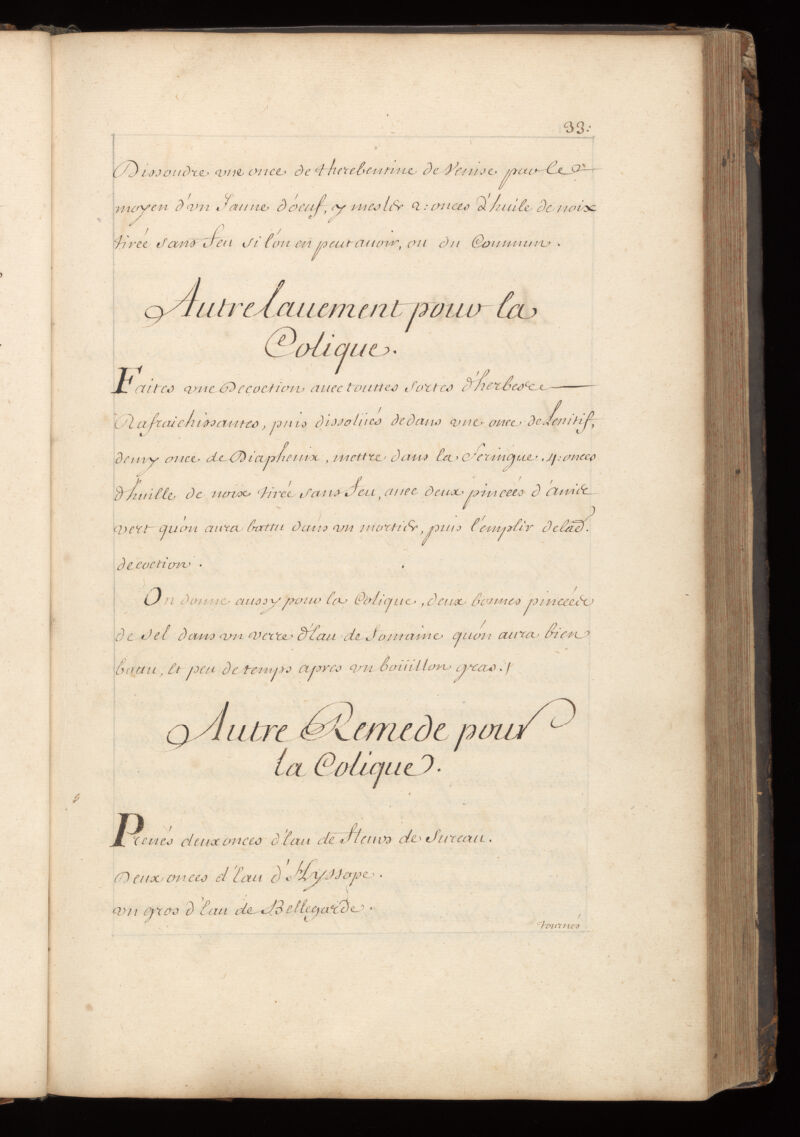 33:
Dissoudre une once de therebentine de Venise par le
moyen d'un Jaune d'oeuf, y mesler 2: onces d'huile de noix
tirée sans feu si l'on en peut auoir, ou du Commun.
Autre lauement pour la
Colique.
Faites une Decoction auec touttes sortes d'herbes
Rafraichissantes, puis dissolués dedans une once de Lenitif,
demy once de Diaphenix, mettre dans la Seringue .4. onces
d'huille de noix tirée sans feu, auec deux pincées d'anis
vert qu'on aura battu dans un mortier, puis l'emplir de lad.
decoction.
On donne aussy pour la Colique, deux bonnes pincées
de sel dans un verre d'Eau de fontaine qu'on aura bien
battu, et peu de temps apres un boüillon gras.
Autre Remede pour
la Colique.
Prenés deux onces d'Eau de fleurs de Sureau.
Deux onces d'Eau d'Hyssope.
un gros d'Eau de Bellegarde.
tournés